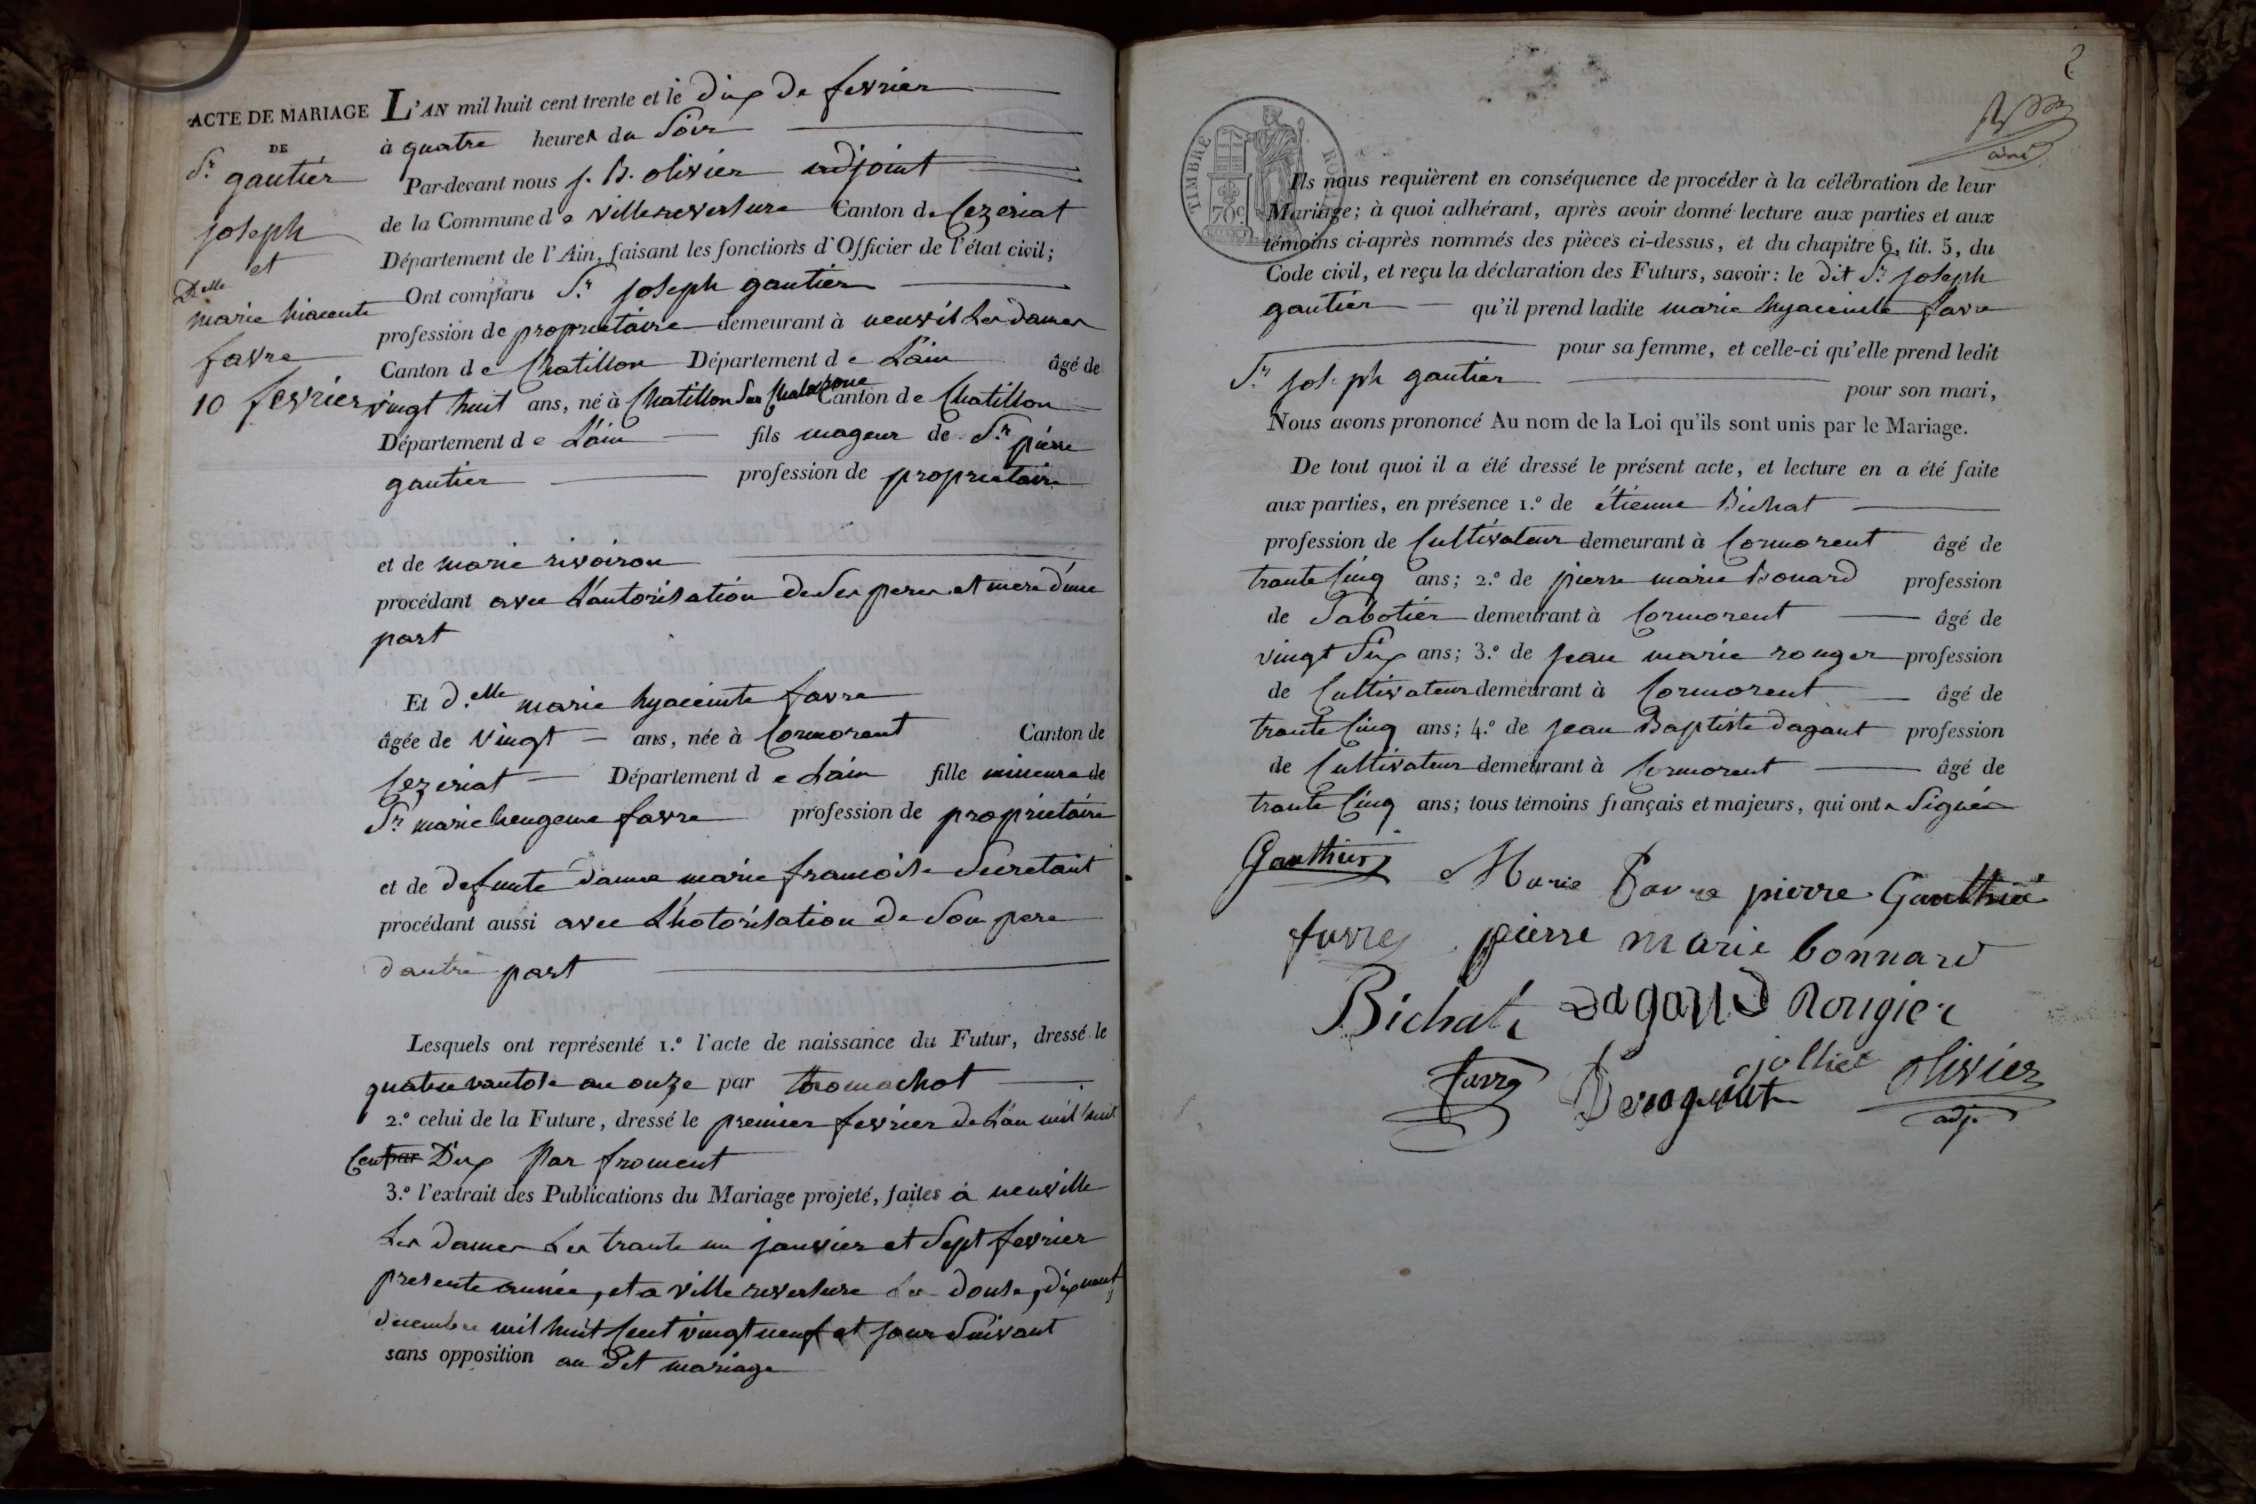 ACTE DE MARIAGE
DE
Sr. gautier
joseph
et
Delle
marie hiacente
favre
10 fevrier
L'AN mil huit cent trente et le dix de fevrier
à quatre heures du soir
Par-devant nous j. B. olivier adjoint
de la Commune de villereversure Canton de Cezeriat
Département de l'Ain, faisant les fonctions d'Officier de l'état civil;
Ont comparu Sr. joseph gautier
profession de proprietaire demeurant à neuvil les dames
Canton de Chatillon Département de L'ain âgé de
vingt huit ans, né à Chatillon sur Chalaronne Canton de Chatillon
Département de L'ain fils mageur de Sr. pierre
gautier profession de proprietaire
et de marie rivoiron
procédant avec L'autorisation de ses peres et mere d'une
part
Et d.elle marie hyaceinte favre
âgée de vingt ans, née à Cormorent Canton de
Cezeriat Département de Lain fille mineure de
Sr. marie heugene favre profession de propriétaire
et de defunte dame marie francoise Secretant
procédant aussi avec L'hotorisation de Son pere
dautre part
Lesquels ont représenté 1.º l'acte de naissance du Futur, dressé le
quatre vantose an onze par thomachot
2.º celui de la Future, dressé le premier fevrier de L'an mil huit
Cent par Dix par froment
3.º l'extrait des Publications du Mariage projeté, faites à neuville
Les dames Les trante un janvier et Sept fevrier
presente année, et a villereversure Les douse, dix neuf
decembre mil huit Cent vingt neuf et jour Suivant
sans opposition au dit mariage
2
TIMBRE ROYAL
70c
Ils nous requièrent en conséquence de procéder à la célébration de leur
Mariage; à quoi adhérant, après avoir donné lecture aux parties et aux
témoins ci-après nommés des pièces ci-dessus, et du chapitre 6, tit. 5, du
Code civil, et reçu la déclaration des Futurs, savoir: le dit Sr. joseph
gautier qu'il prend ladite marie hyaceinte favre
pour sa femme, et celle-ci qu'elle prend ledit
Sr. joseph gautier pour son mari,
Nous avons prononcé Au nom de la Loi qu'ils sont unis par le Mariage.
De tout quoi il a été dressé le présent acte, et lecture en a été faite
aux parties, en présence 1.º de étienne Bichat
profession de Cultivateur demeurant à Cormorent âgé de
trante Cinq ans; 2.º de pierre marie Bonard profession
de Sabotier demeurant à Cormorent âgé de
vingt Six ans; 3.º de jean marie rouger profession
de Cultivateur demeurant à Cormorent âgé de
trante Cinq ans; 4.º de jean Baptiste dagant profession
de Cultivateur demeurant à Cormorent âgé de
trante Cinq ans; tous témoins français et majeurs, qui ont Signés
Gauthier Marie Favre pierre Gauthié
favre pierre marie bonnard
Bichat dagand Rougier
favre jolliet olivier
adj.